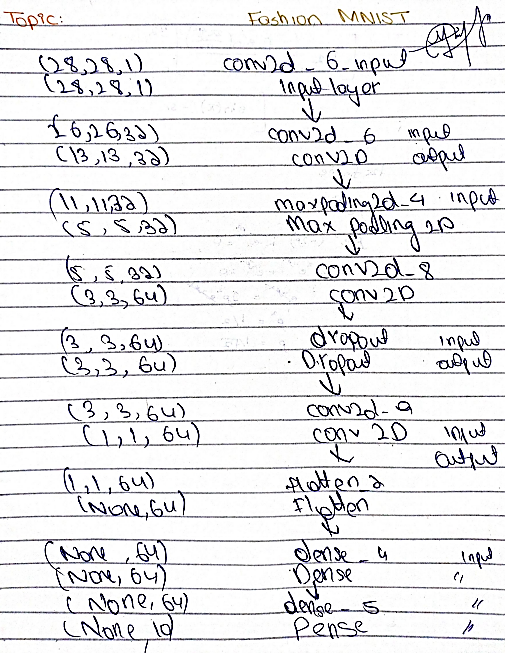 Topic: Fashion MNIST
(28,28,1) conv2d_6_input
(28,28,1) Input layer
↓
(26,26,32) conv2d_6 input
(13,13,32) conv2D output
↓
(11,11,32) maxpooling2d_4 input
(5,5,32) Max pooling 2D
↓
(5,5,32) conv2d_8
(3,3,64) conv2D
↓
(3,3,64) dropout input
(3,3,64) Dropout output
↓
(3,3,64) conv2d_9
(1,1,64) conv 2D input
↓ output
(1,1,64) flatten_2
(None,64) Flatten
↓
(None,64) dense_4 input
(None,64) Dense "
(None,64) dense_5 "
(None,10 Dense "